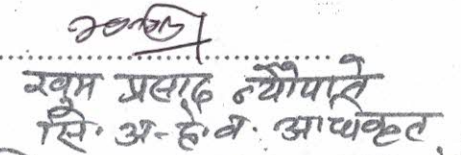 खुम प्रसाद न्यौपाने
सि. अ-हे.व. आधिकृत